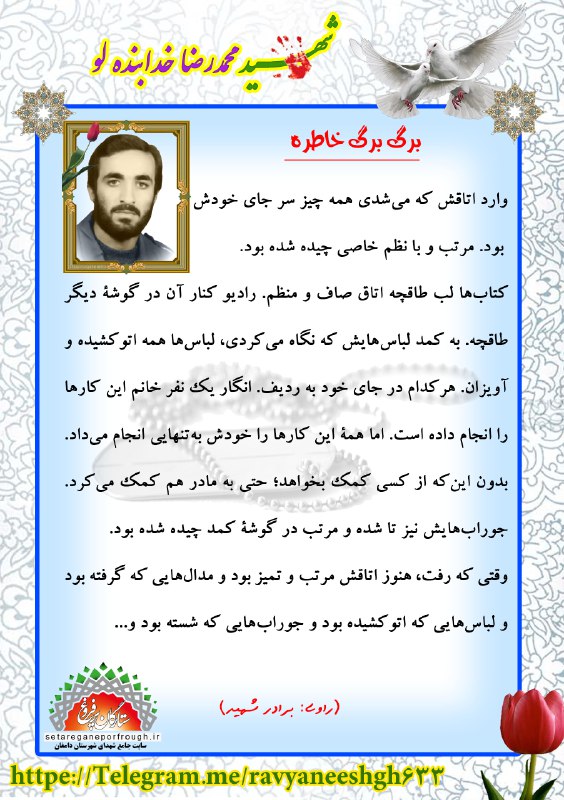 شهید محمدرضا خدابنده لو
برگ برگ خاطره
وارد اتاقش که می‌شدی همه چیز سر جای خودش
بود. مرتب و با نظم خاصی چیده شده بود.
کتاب‌ها لب طاقچه اتاق صاف و منظم. رادیو کنار آن در گوشهٔ دیگر
طاقچه. به کمد لباس‌هایش که نگاه می‌کردی، لباس‌ها همه اتوکشیده و
آویزان. هرکدام در جای خود به ردیف. انگار یک نفر خانم این کارها
را انجام داده است. اما همهٔ این کارها را خودش به‌تنهایی انجام می‌داد.
بدون این‌که از کسی کمک بخواهد؛ حتی به مادر هم کمک می‌کرد.
جوراب‌هایش نیز تا شده و مرتب در گوشهٔ کمد چیده شده بود.
وقتی که رفت، هنوز اتاقش مرتب و تمیز بود و مدال‌هایی که گرفته بود
و لباس‌هایی که اتوکشیده بود و جوراب‌هایی که شسته بود و...
(راوی: برادر شهید)
ستارگان پرفروغ
setareganeporfrough.ir
سایت جامع شهدای شهرستان دامغان
https://Telegram.me/ravyaneeshgh۶۳۳